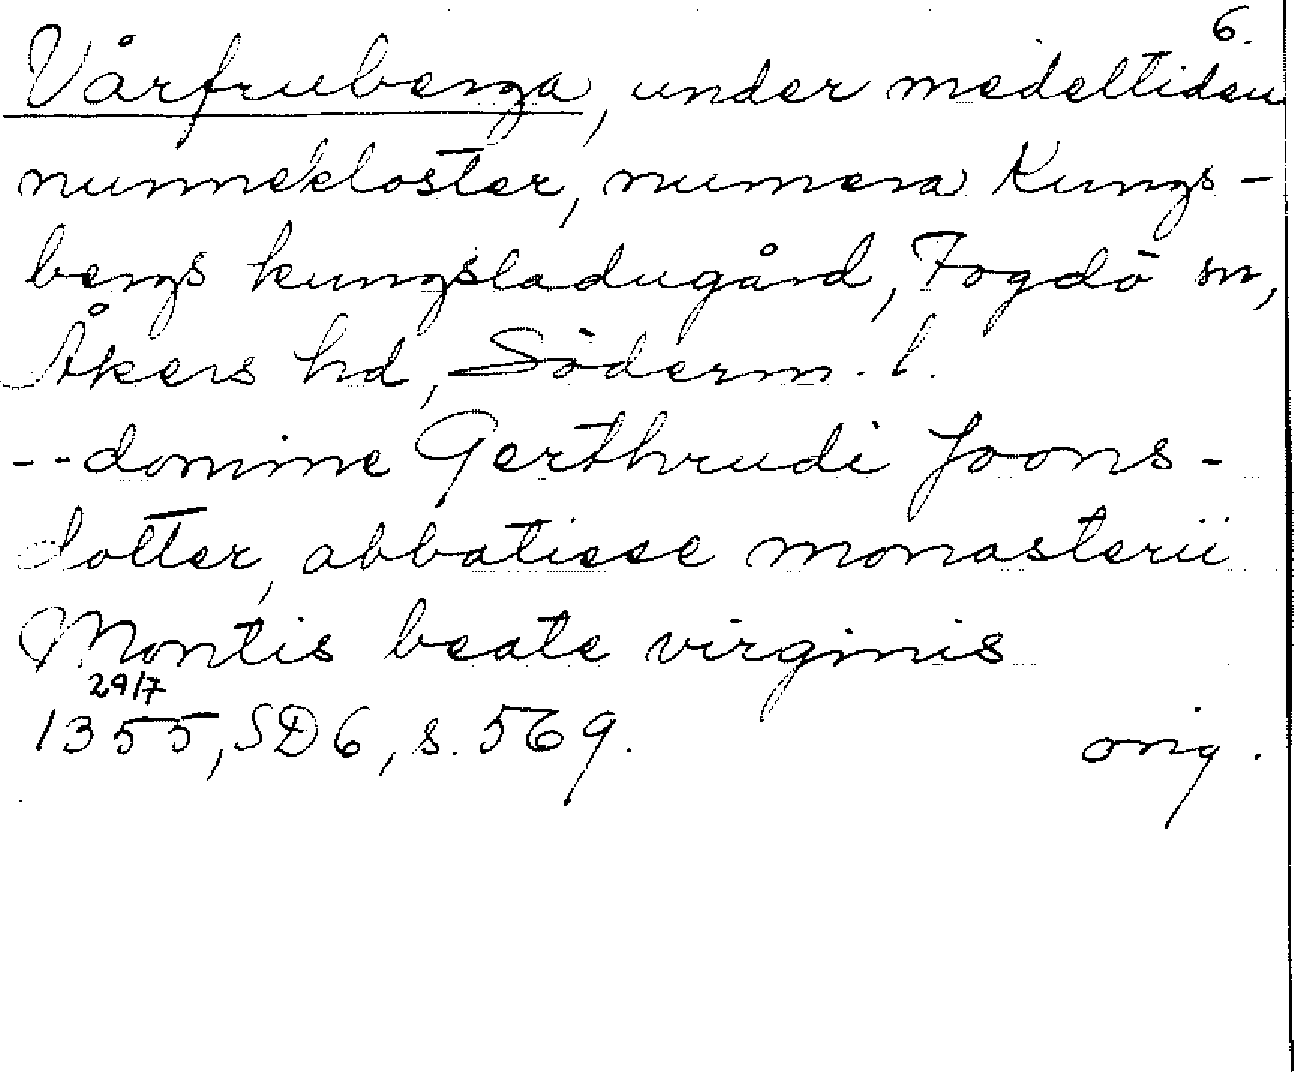 6.
Vårfruberga, under medeltiden
nunnekloster, numera Kungs-
bergs kungsladugård, Fogdö sn,
Åkers hd, Söderm. l.
-- domine Gerthrudi Joons-
dotter, abbatisse monasterii
Montis beate virginis
29/7
1355, SD 6, s. 569. orig.